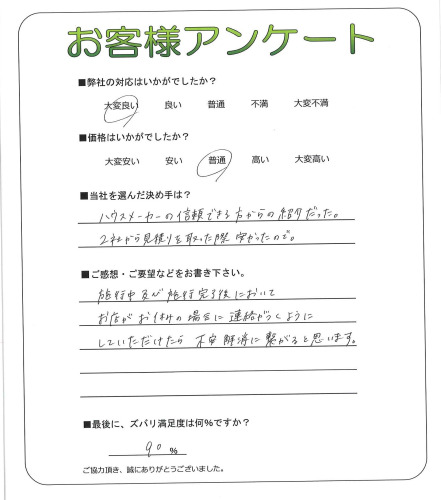 お客様アンケート
■弊社の対応はいかがでしたか?
大変良い 良い 普通 不満 大変不満
■価格はいかがでしたか?
大変安い 安い 普通 高い 大変高い
■当社を選んだ決め手は?
ハウスメーカーの信頼できる方からの紹介だった。
2社から見積りを取った際 安かったので。
■ご感想・ご要望などをお書き下さい。
施行中及び施行完了後において
お店がお休みの場合に連絡がつくように
していただけたら 不安解消に繋がると思います。
■最後に、ズバリ満足度は何%ですか?
90 %
ご協力頂き、誠にありがとうございました。